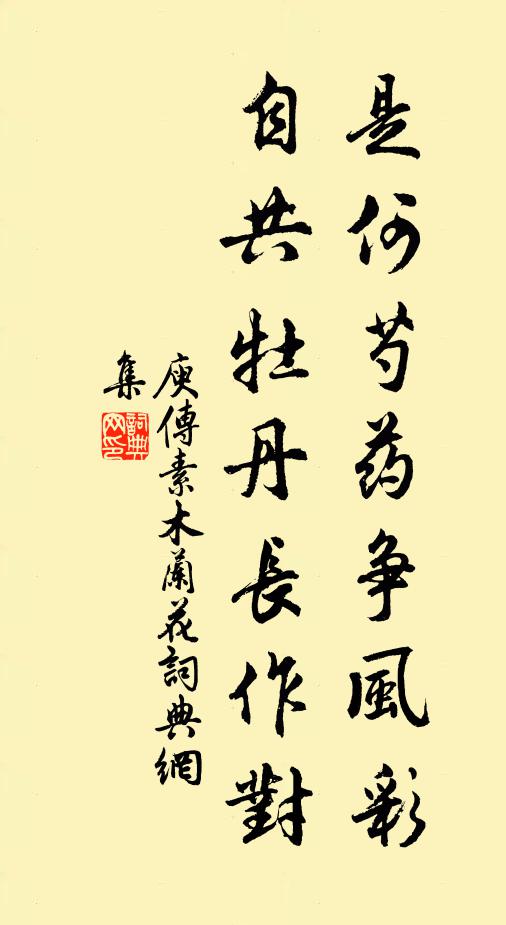 是何芍药争風彩
自共牡丹長作對
庾傳素木蘭花詞典網
集
詞典网印